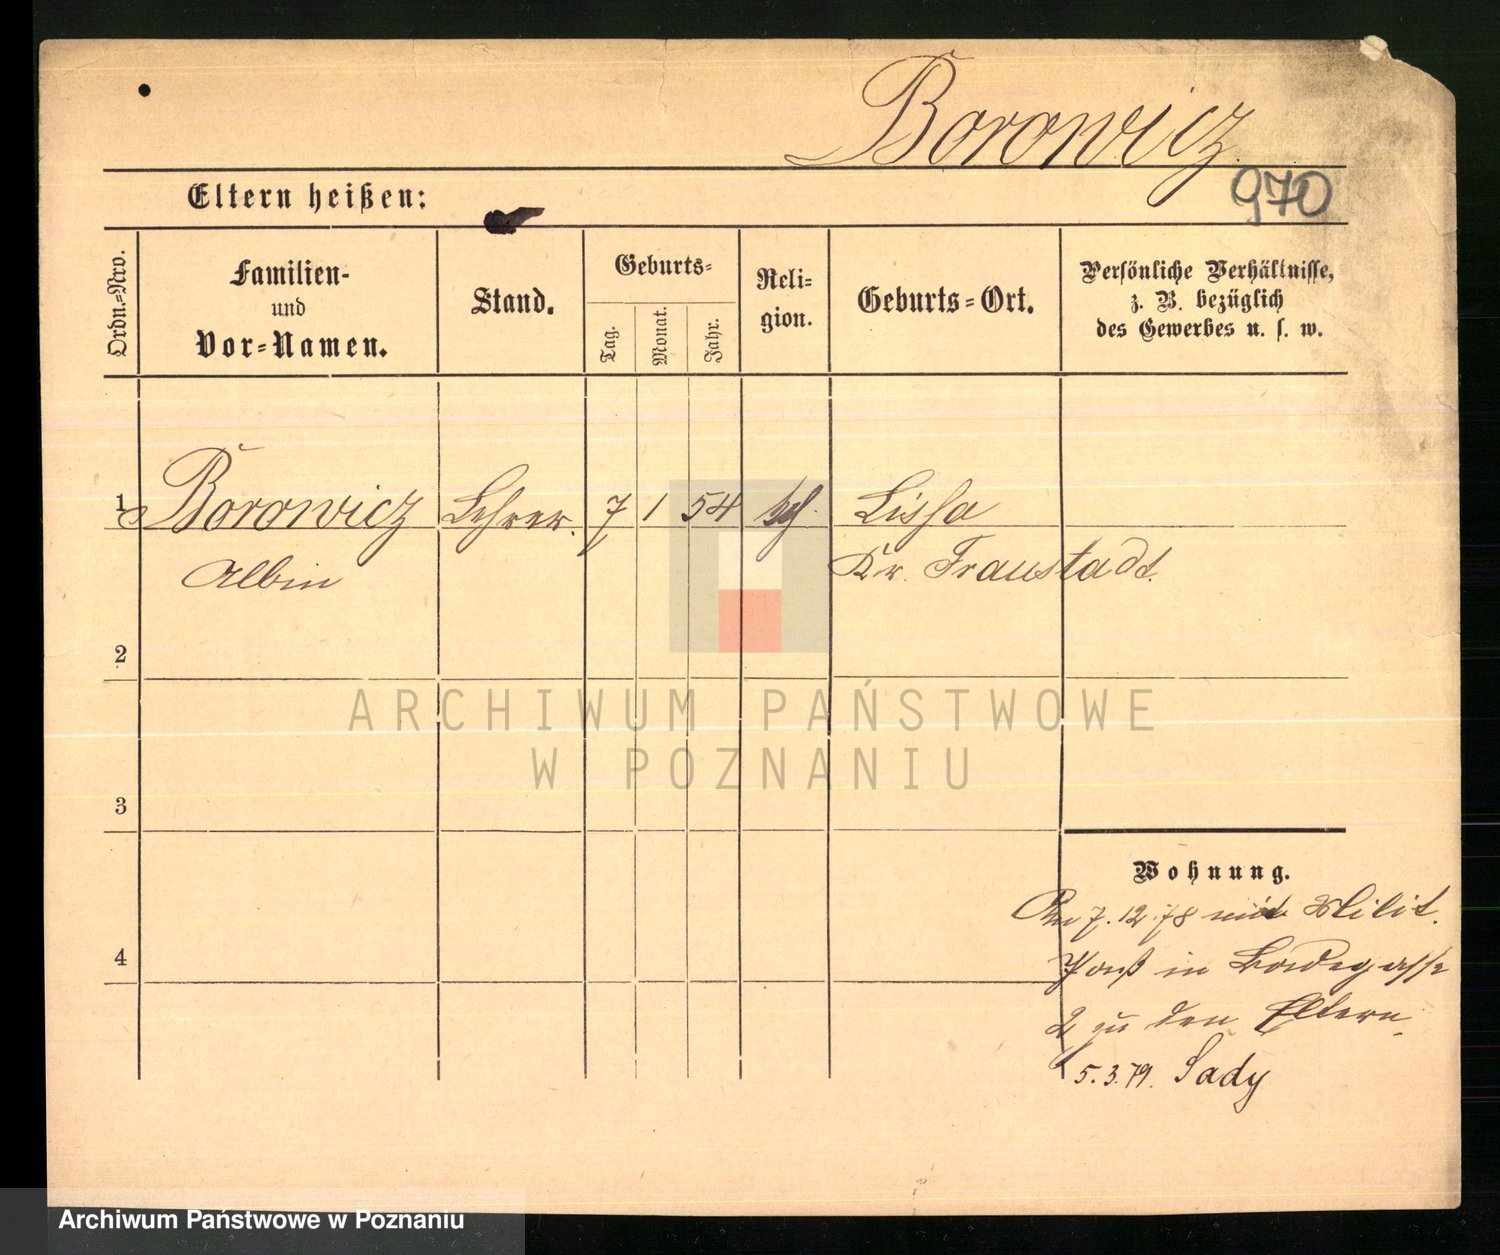 Borowicz
970
Eltern heißen:
Ordn.-Nro.
Familien-
und
Vor-Namen.
Stand.
Geburts-
Tag.
Monat.
Jahr.
Reli-
gion.
Geburts-Ort.
Persönliche Verhältnisse,
z. B. bezüglich
des Gewerbes u. s. w.
1 Borowicz Lehrer. 7 1 54 Lissa
Albin Kr. Fraustadt.
2
3
4
Wohnung.
7.12.78 mit Milit.
Paß in
2 zu den Eltern
5.3.79. Sady
ARCHIWUM PAŃSTWOWE
W POZNANIU
Archiwum Państwowe w Poznaniu